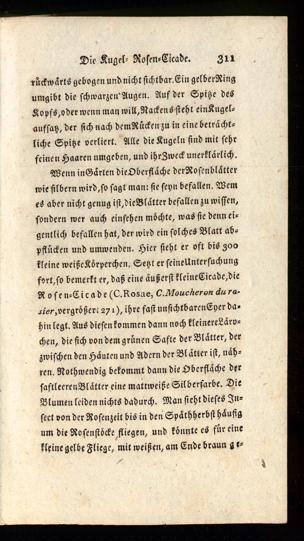 Die Kugel- Rosen-Cicade. 311
rückwärts gebogen und nicht sichtbar. Ein gelber Ring
umgibt die schwarzen Augen. Auf der Spitze des
Kopfs, oder wenn man will, Nackens steht ein Kugel-
aufsatz, der sich nach dem Rücken zu in eine beträcht-
liche Spitze verliert. Alle die Kugeln sind mit sehr
feinen Haaren umgeben, und ihr Zweck unerklärlich.
Wenn in Gärten die Oberfläche der Rosenblätter
wie silbern wird, so sagt man: sie seyn befallen. Wem
es aber nicht genug ist, die Blätter befallen zu wissen,
sondern wer auch einsehen möchte, was sie denn ei-
gentlich befallen hat, der wird ein solches Blatt ab-
pflücken und umwenden. Hier sieht er oft bis 300
kleine weiße Körperchen. Setzt er seine Untersuchung
fort, so bemerkt er, daß eine äußerst kleine Cicade, die
Rosen-Cicade (C. Rosae, C. Moucheron du ro-
sier, vergrößer: 271), ihre fast unsichtbaren Eyer da-
hin legt. Aus diesen kommen dann noch kleinere Lärv-
chen, die sich von dem grünen Safte der Blätter, der
zwischen den Häuten und Adern der Blätter ist, näh-
ren. Nothwendig bekommt dann die Oberfläche der
saftleeren Blätter eine mattweiße Silberfarbe. Die
Blumen leiden nichts dadurch. Man sieht dieses In-
sect von der Rosenzeit bis in den Spätherbst häufig
um die Rosenstöcke fliegen, und könnte es für eine
kleine gelbe Fliege, mit weißen, am Ende braun ge-